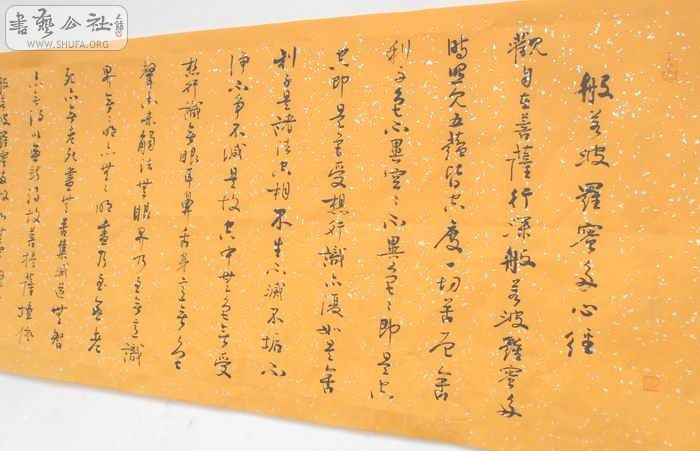 般若波羅蜜多心経
觀自在菩薩行深般若波羅蜜多
時照見五蘊皆空度一切苦厄舍
利子色不異空空不異色色即是空
空即是色受想行識亦復如是舍
利子是諸法空相不生不滅不垢不
淨不增不減是故空中無色無受
想行識無眼耳鼻舌身意無色
聲香味觸法無眼界乃至無意識
界無無明亦無無明盡乃至無老
死亦無老死盡無苦集滅道無智
亦無得以無所得故菩提薩埵依
般若波羅蜜多故
書藝公社
WWW.SHUFA.ORG